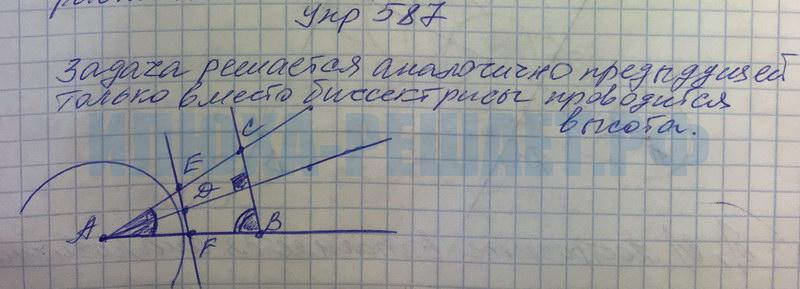 Упр 587
Задача решается аналогично предыдущей
только вместо биссектрисы проводится
высота.
ИЛЮХА-РЕШАЕТ.РФ
C
E
D
A
B
F